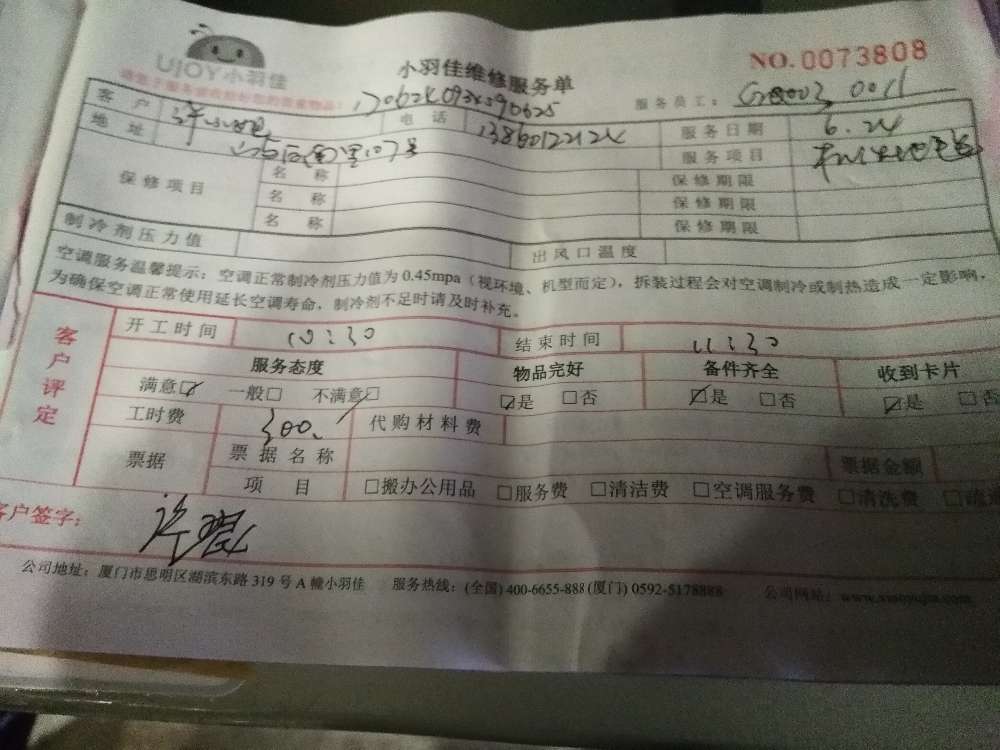 UJOY小羽佳
小羽佳维修服务单
NO.0073808
服务员工:
客户
电话 13860122124
服务日期 6.24
地址 107号
服务项目
保修项目
名称
保修期限
名称
保修期限
名称
保修期限
制冷剂压力值
出风口温度
空调服务温馨提示:空调正常制冷剂压力值为0.45mpa(视环境、机型而定),拆装过程会对空调制冷或制热造成一定影响,
为确保空调正常使用延长空调寿命,制冷剂不足时请及时补充。
客户评定
开工时间 10:30
结束时间 11:30
服务态度
物品完好
备件齐全
收到卡片
满意☑ 一般□ 不满意□
☑是 □否
☑是 □否
☑是 □否
工时费 300.
代购材料费
票据
票据名称
票据金额
项目 □搬办公用品 □服务费 □清洁费 □空调服务费 □清洗费
客户签字:
公司地址:厦门市思明区湖滨东路319号A幢小羽佳 服务热线:(全国)400-6655-888(厦门)0592-5178888 公司网站:www.xiaoyujia.com